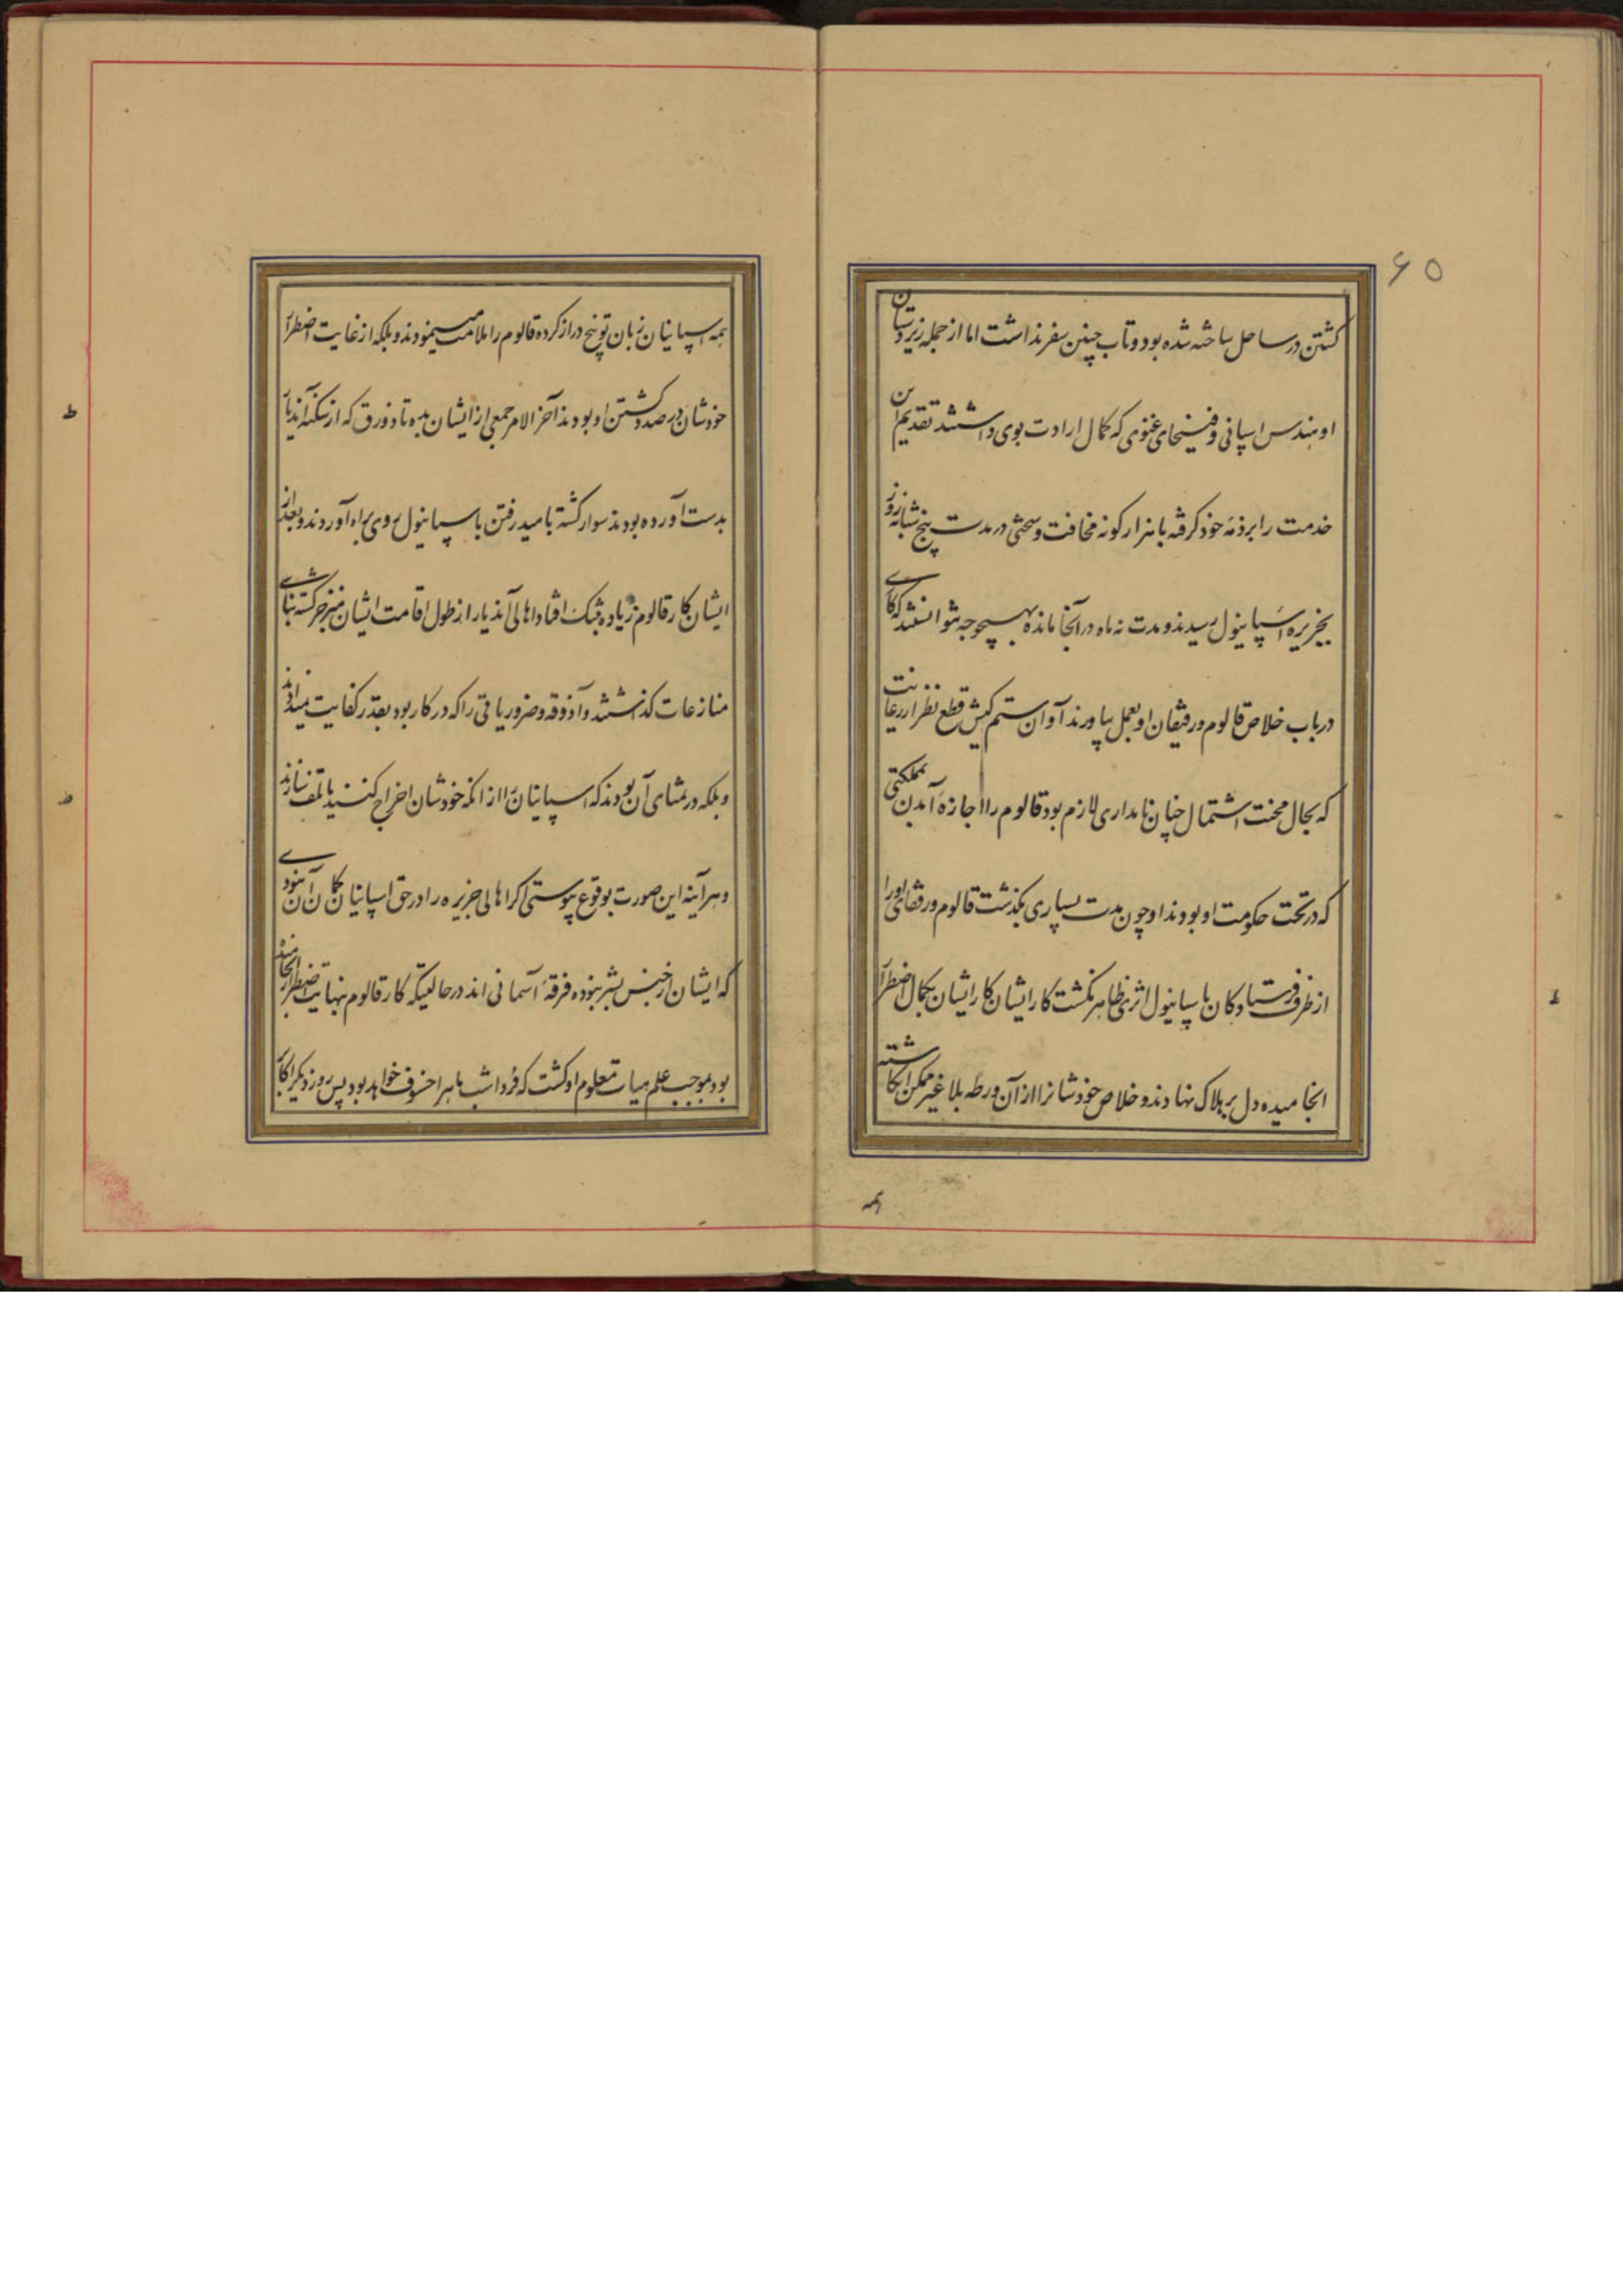 ۶۵
کشتن در ساحل ساخته شده بود و تاب چنین سفر نداشت اما از جمله زیردستان
او مهندس اسپانی و فیسحای غنوی که کمال ارادت بوی داشتند تقدیم این
خدمت را برذمهٔ خود کرفته با هزار کونه مخافت و سختی در مدت پنج شبانه روز
بجزیره اسپانیول رسیدند و مدت نه ماه در آنجا مانده بهیچوجه نتوانستند که کاری
در باب خلاص قالوم و رفیقان او بعمل بیاورند آوان ستم کیش قطع نظر از رعایت
که بحال محنت اشتمال چنان نامداری لازم بود قالوم را اجازه آمدن بمملکتی
که در تحت حکومت او بود نداد و چون مدت بسیاری بکذشت قالوم و رفقای اورا
از طرف فرستادکان باسپانیول اثری ظاهر نکشت کار ایشان کار ایشان بکمال اضطرار
انجامیده دل بر هلاک نهادند و خلاص خودشانرا از آن ورطه بلا غیر ممکن انکاشته
همه
همه اسپانیان زبان توبیخ دراز کرده قالوم را ملامت مینمودند و بلکه از غایت اضطرار
خودشان در صدد کشتن او بودند آخر الامر جمعی از ایشان بده تا ذورق که از سکنه آندیار
بدست آورده بودند سوار کشته بامید رفتن باسپانیول روی براه آوردند و بعد از
ایشان کار قالوم زیاده بتنک افتاد اهالی آندیار از طول اقامت ایشان منزجر کشته بنای
منازعات کذاشتند و آذوقه و ضروریاتی را که در کار بود بقدر کفایت نمیدادند
و بلکه در تمنای آن بودند که اسپانیان را از انکه خودشان اخراج کنند یا تلف سازند
و هر آینه این صورت بوقوع پیوستی اکر اهالی جزیره را در حق اسپانیان کمان آن نبودی
که ایشان از جنس بشر نبوده فرقهٔ آسمانی اند در حالتیکه کار قالوم بنهایت اضطرار انجامیده
بود بموجب علم هیات معلوم او کشت که فردا شب ماه را خسوف خواهد بود پس روز دیکر اکابر